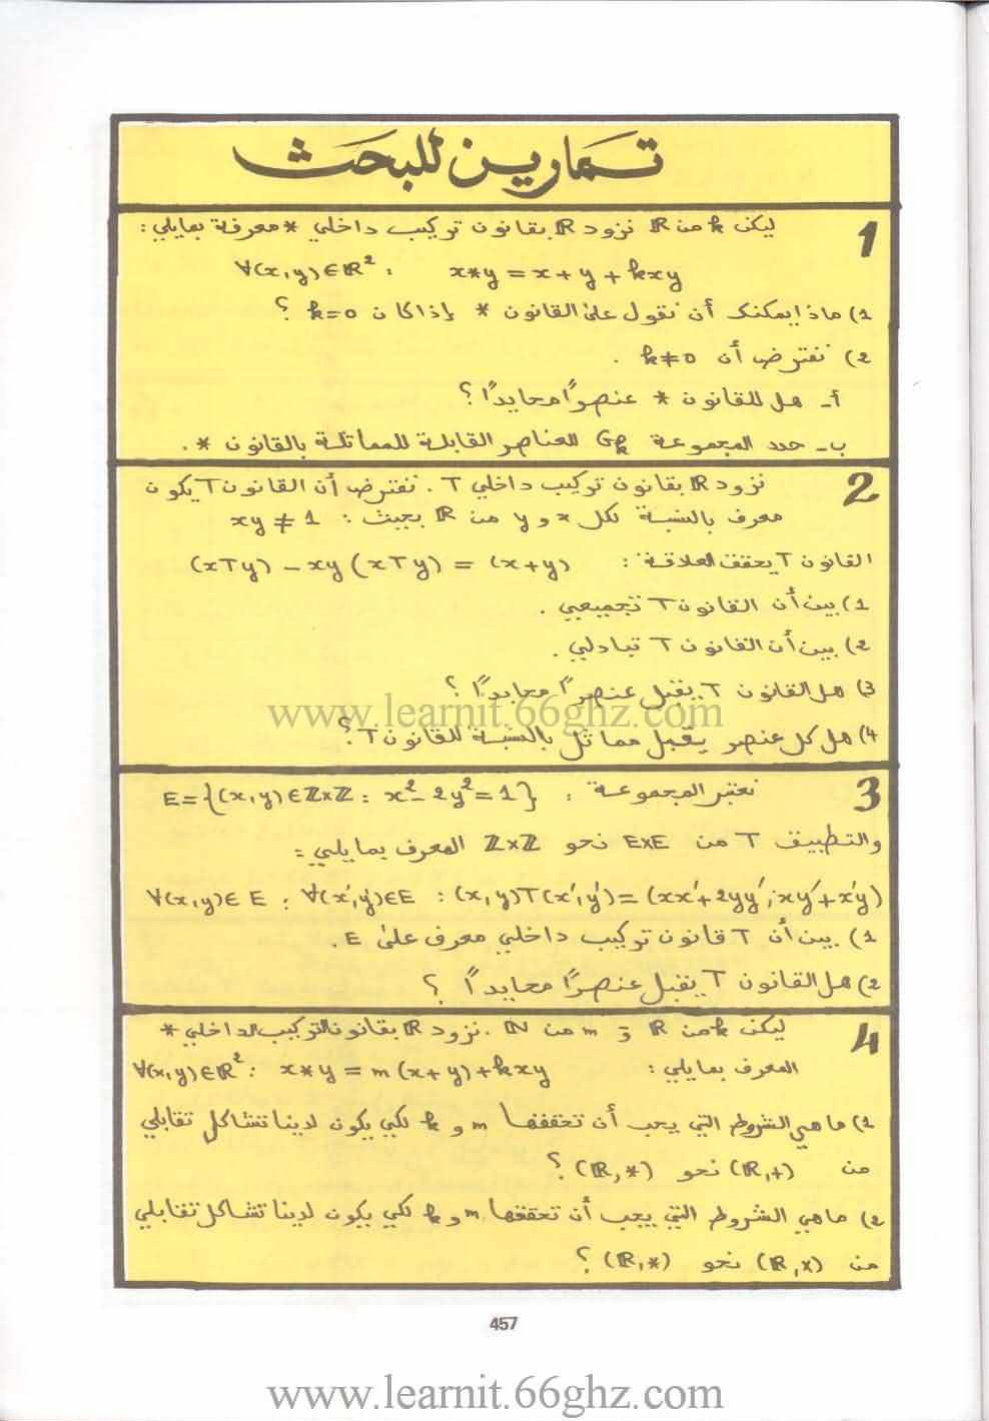 تمارين للبحث
1
ليكن k من ℝ نزود ℝ بقانون تركيب داخلي * معرفة بمايلي :
∀(x,y)∈ℝ² : x*y = x+y+kxy
1) ماذا يمكنك أن نقول على القانون * إذا كان k=0 ؟
2) نفترض أن k≠0 .
أ- هل للقانون * عنصرًا محايدًا ؟
ب- حدد المجموعة Gk للعناصر القابلة للمماثلة بالقانون * .
2
نزود ℝ بقانون تركيب داخلي T . نفترض أن القانون T يكون
معرف بالنسبة لكل x و y من ℝ بحيث : xy ≠ 1
القانون T يحقق العلاقة : (xTy) - xy(xTy) = (x+y)
1) بين أن القانون T تجميعي .
2) بين أن القانون T تبادلي .
3) هل القانون T يقبل عنصرًا محايدًا ؟
www.learnit.66ghz.com
4) هل كل عنصر يقبل مماثل بالنسبة للقانون T ؟
3
نعتبر المجموعة : E={(x,y)∈ℤ×ℤ : x²-2y²=1}
والتطبيق T من E×E نحو ℤ×ℤ المعرف بمايلي :
∀(x,y)∈E ; ∀(x',y')∈E : (x,y)T(x',y')=(xx'+2yy' ; xy'+x'y)
1) بين أن T قانون تركيب داخلي معرف على E .
2) هل القانون T يقبل عنصرًا محايدًا ؟
4
ليكن k من ℝ و m من ℕ . نزود ℝ بقانون التركيب الداخلي *
المعرف بمايلي : ∀(x,y)∈ℝ² : x*y = m(x+y)+kxy
1) ما هي الشروط التي يجب أن تحققها m و k لكي يكون لدينا تشاكل تقابلي
من (ℝ,+) نحو (ℝ,*) ؟
2) ماهي الشروط التي يجب أن تحققها m و k لكي يكون لدينا تشاكل تقابلي
من (ℝ,×) نحو (ℝ,*) ؟
457
www.learnit.66ghz.com